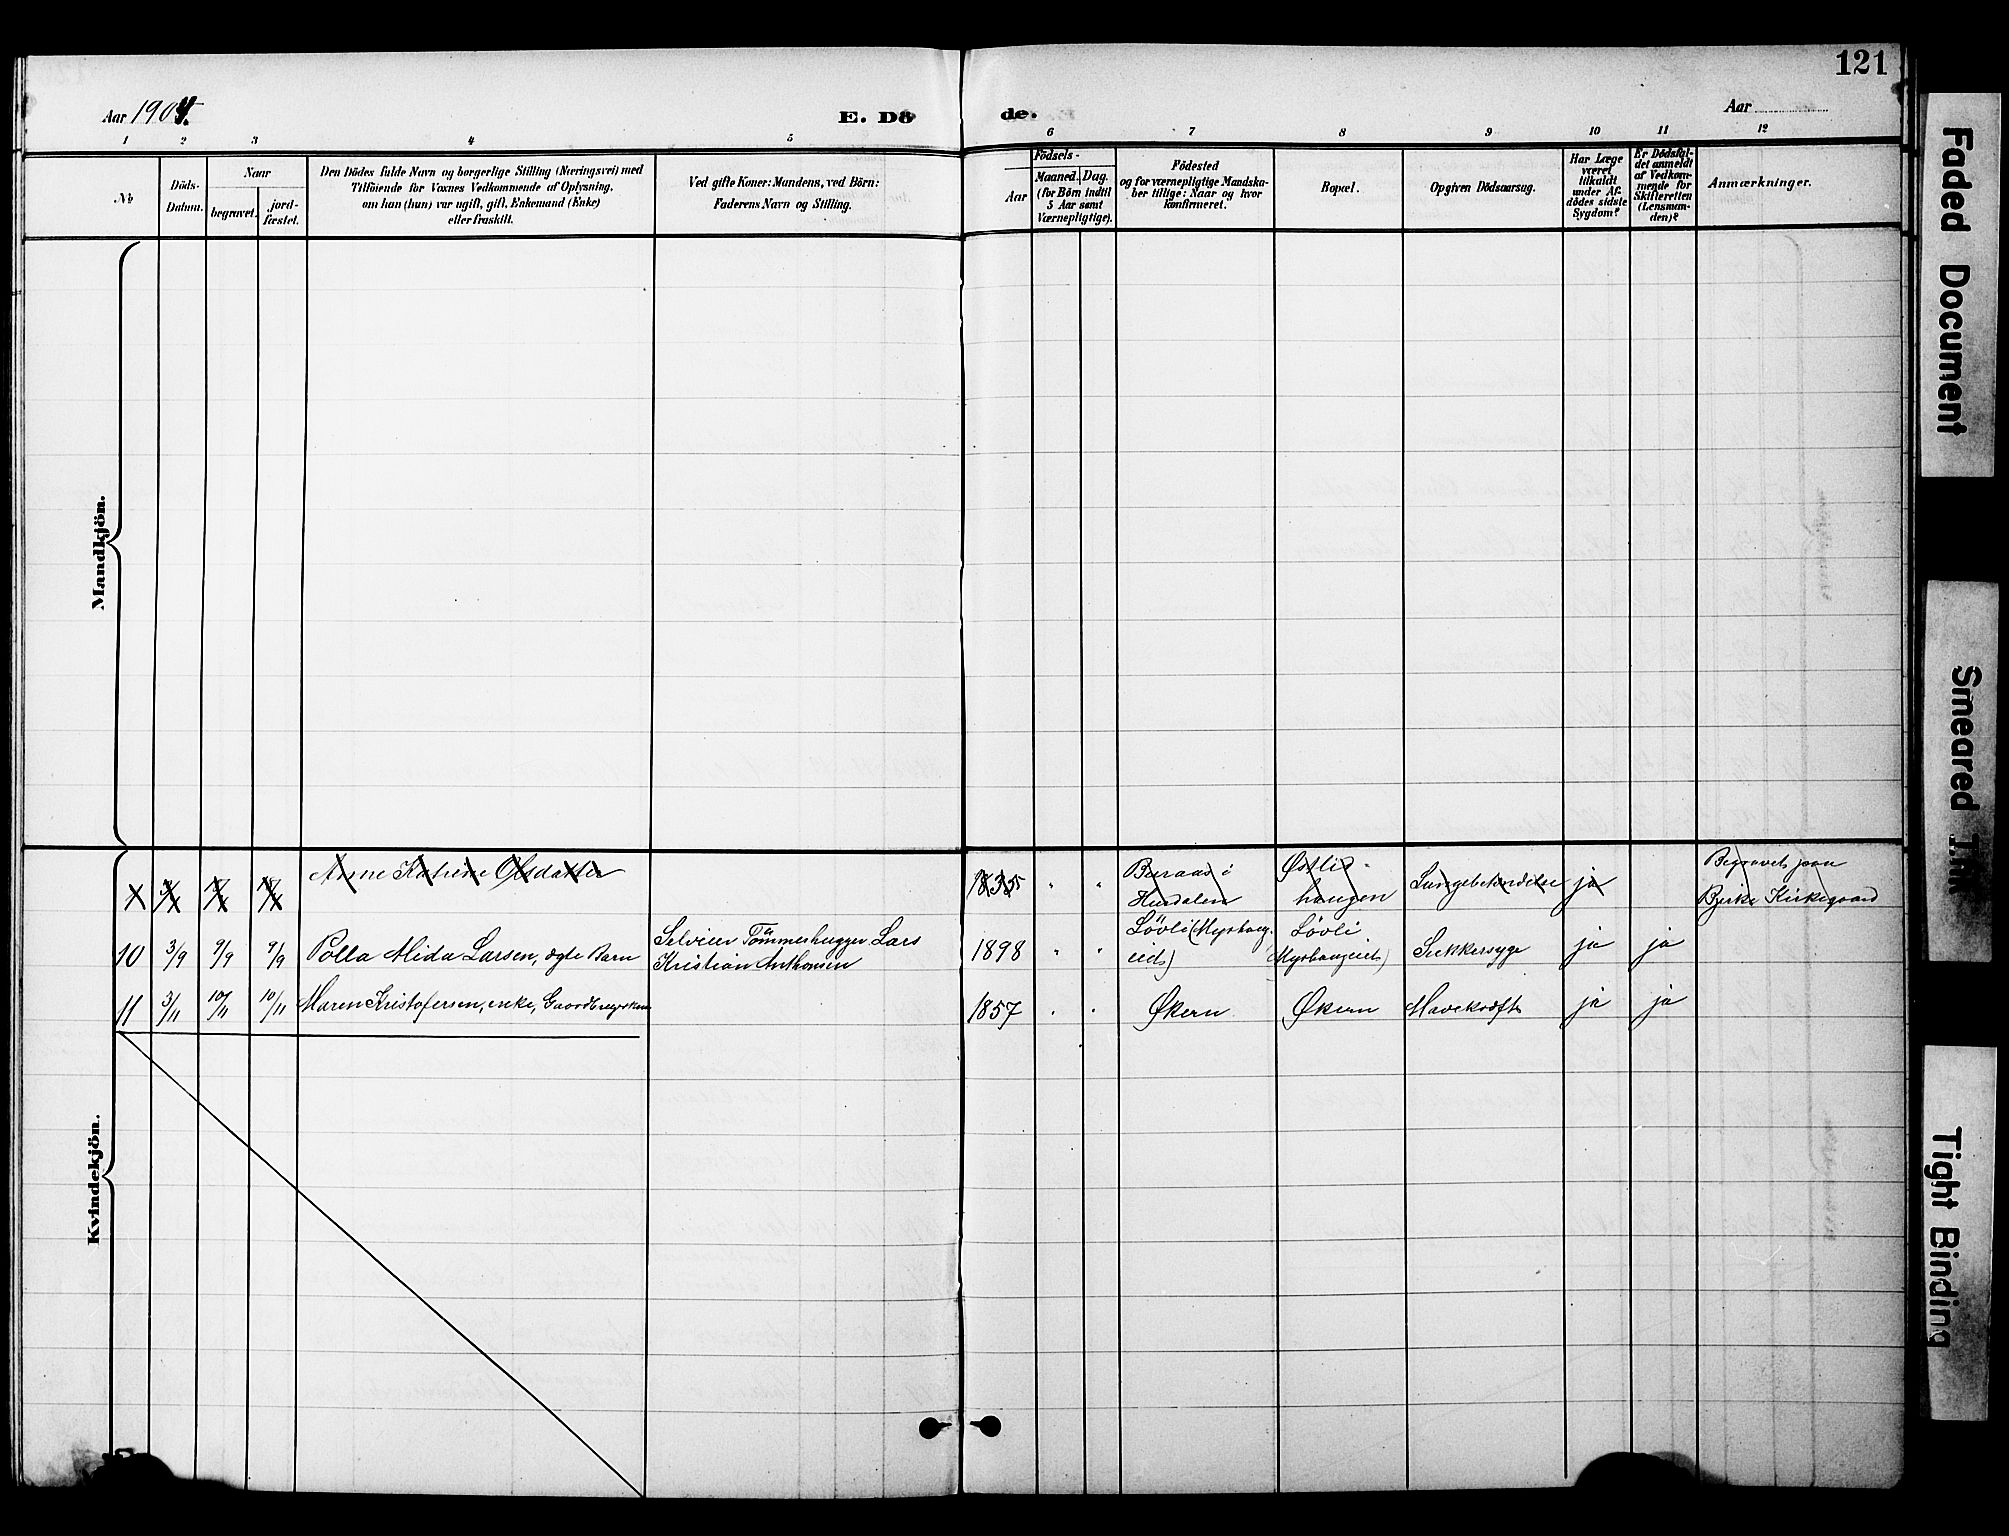 121
Aar 1904.
E. Dö
de.
Aar
1 2 3 4 5 6 7 8 9 10 11 12
No
Döds-
Datum.
Naar
begravet.
jord-
fæstet.
Den Dödes fulde Navn og borgerlige Stilling (Næringsvei) med
Tilföiende for Voxnes Vedkommende af Oplysning,
om han (hun) var ugift, gift, Enkemand (Enke)
eller fraskilt.
Ved gifte Koner: Mandens, ved Börn:
Faderens Navn og Stilling.
Födsels-
Aar
Maaned. Dag.
(for Börn indtil
5 Aar samt
Værnepligtige).
Födested
og for værnepligtige Mandska-
ber tillige: Naar og hvor
konfirmeret.
Bopæl.
Opgiven Dödsaarsag.
Har Læge
været
tilkaldt
under Af-
dödes sidste
Sygdom?
Er Dödsfal-
det anmeldt
af Vedkom-
mende for
Skifteretten
(Lensman-
den)?
Anmærkninger.
Mandkjön.
Kvindekjön.
Anne Katrine Olsdatter
1835 " "
Buraas i
Hurdalen
Østli-
haugen
Lungebetændelse
ja
Begravet paa
Bjerke Kirkegaard
10 3/9 9/9 9/9 Polla Alida Larsen, ægte Barn
Selveier Tömmerhugger Lars
Kristian Anthonsen
1898 " "
Lövli (Myrhaug-
eiet)
Lövli
(Myrhaugeiet)
Sukkersyge
ja
ja
11 3/11 10/11 10/11 Maren Kristofersen, enke, Gaardbrugerske
1857 " "
Økern
Økern
Mavekræft
ja
ja
Faded Document
Smeared Ink
Tight Binding